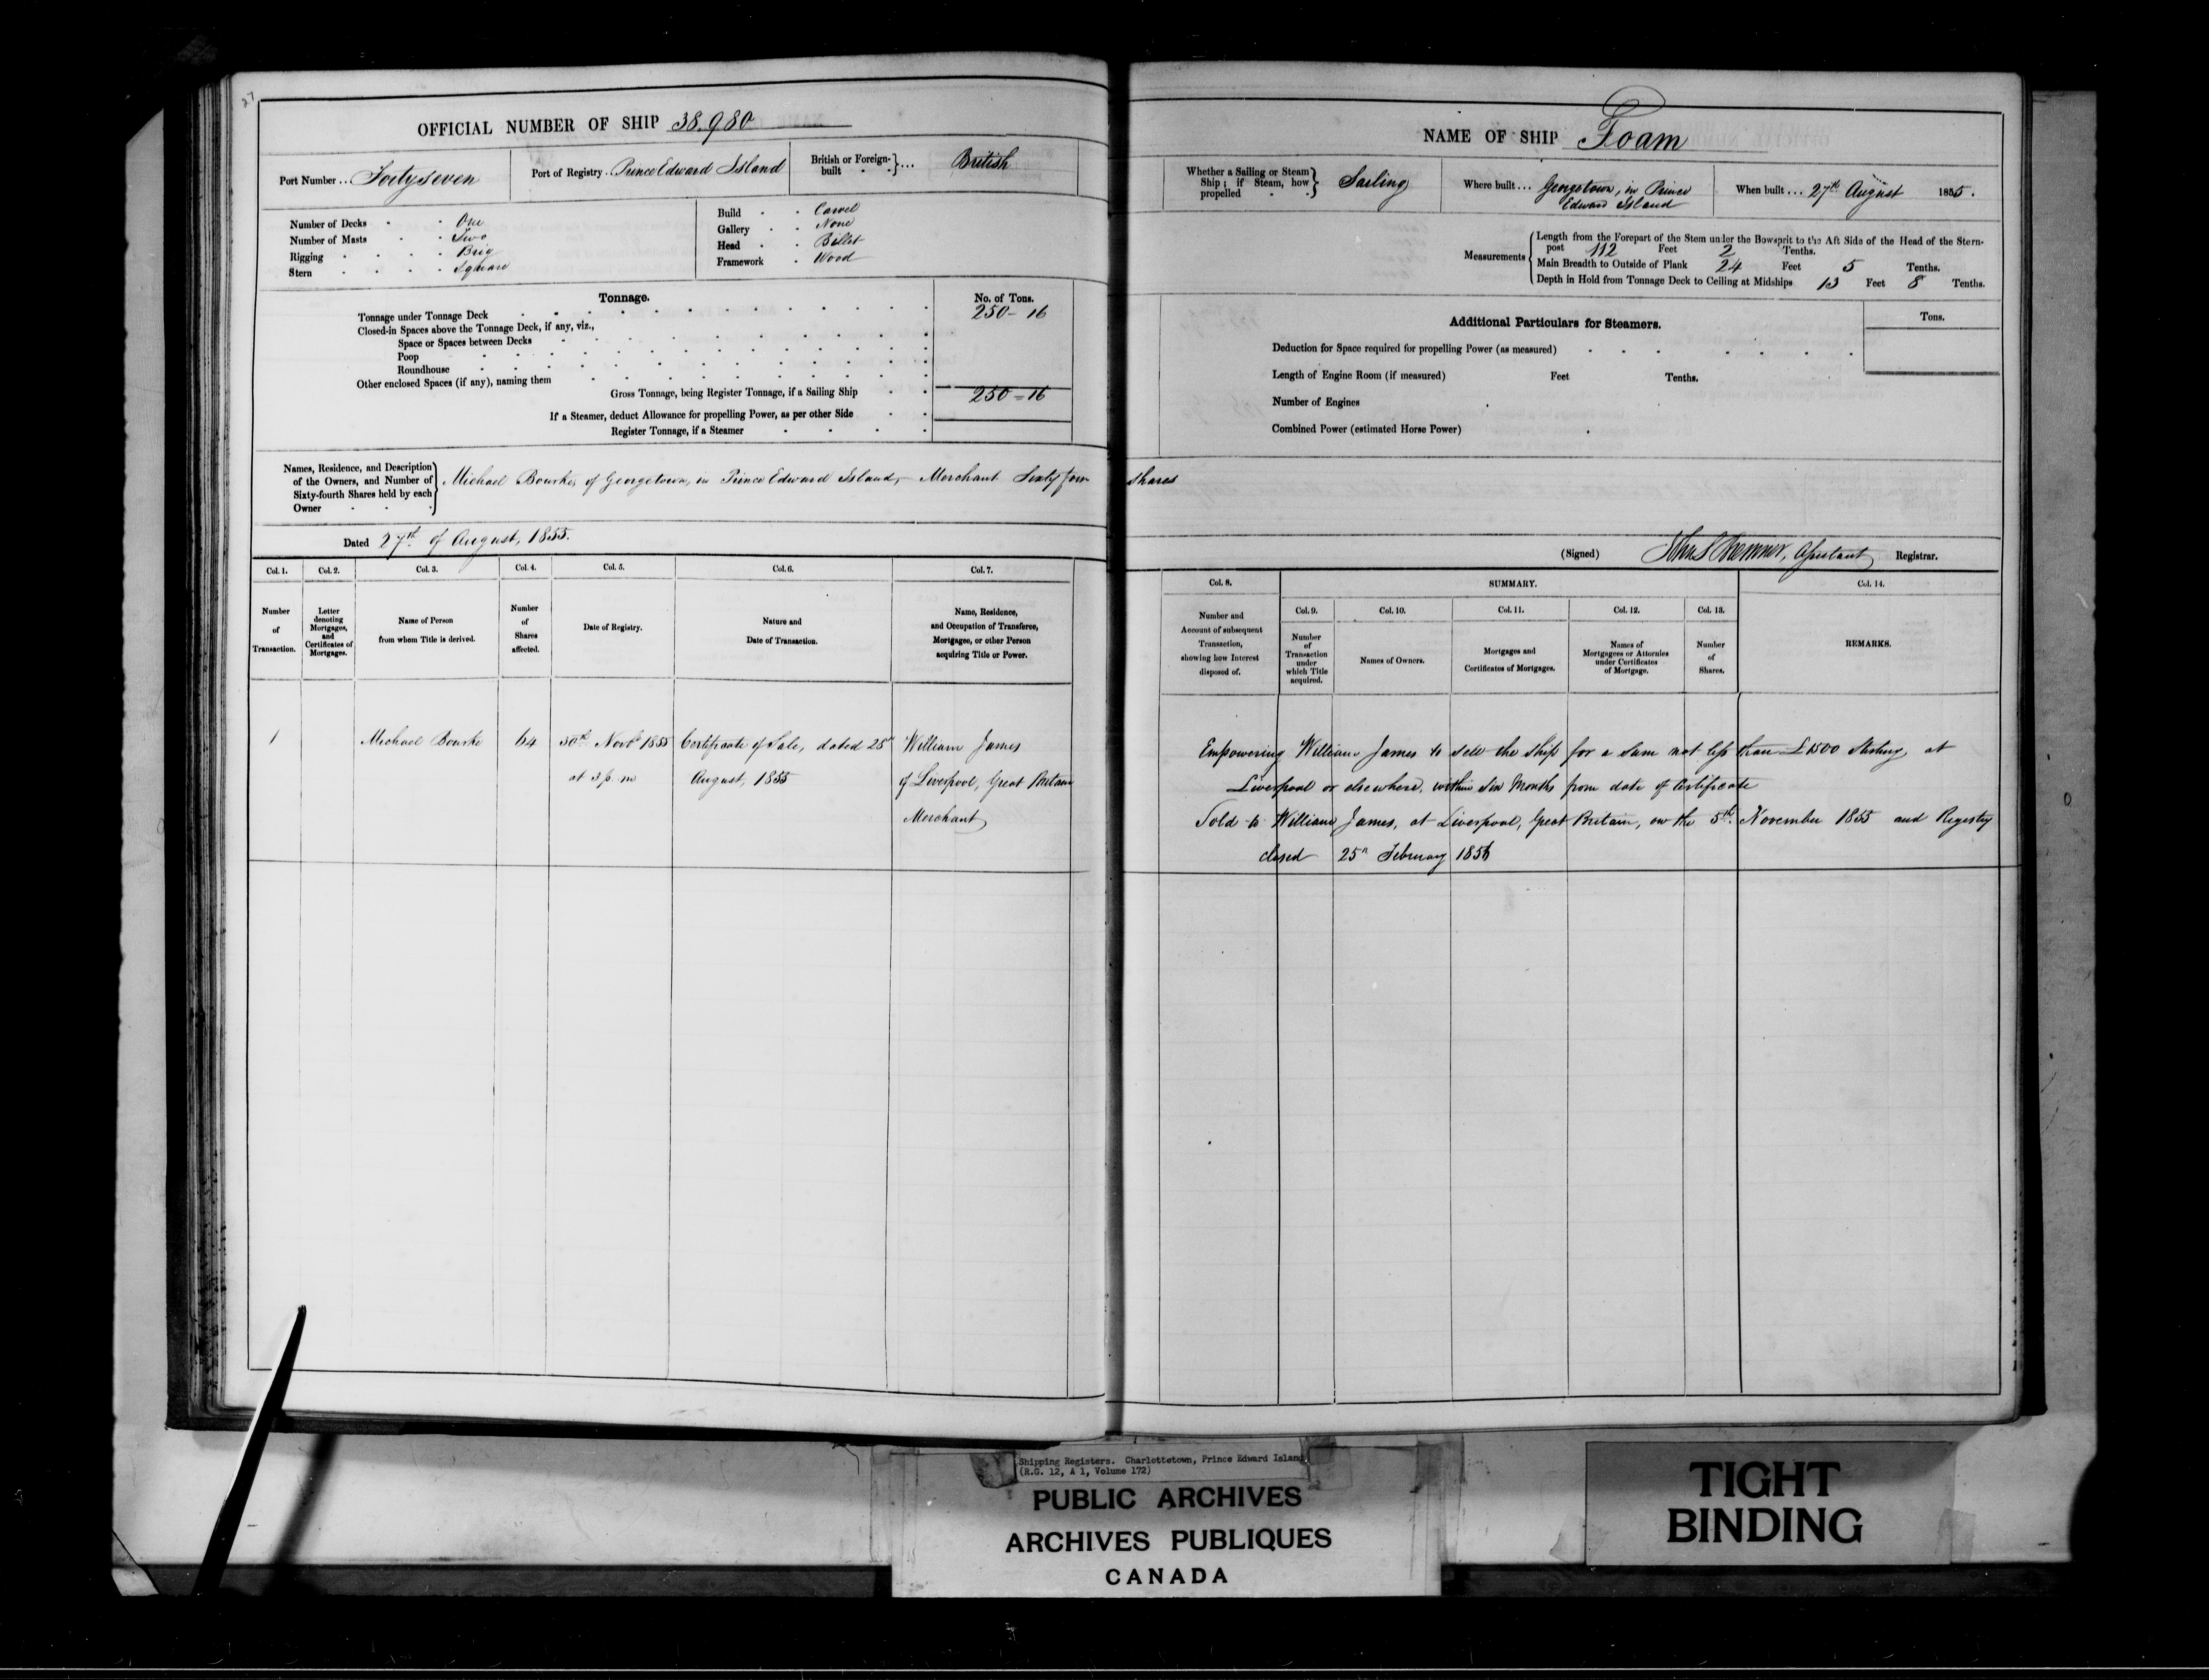 27
OFFICIAL NUMBER OF SHIP 38.980
Port Number .. Forty seven
Port of Registry . Prince Edward Island
British or Foreign-built . . } ... British
Number of Decks . . One
Number of Masts . . Two
Rigging . . . . Brig
Stern . . . . Square
Build . . Carvel
Gallery . . None
Head . . Billet
Framework . Wood
Tonnage.
No. of Tons.
Tonnage under Tonnage Deck 250 - 16
Closed-in Spaces above the Tonnage Deck, if any, viz.,
Space or Spaces between Decks
Poop
Roundhouse
Other enclosed Spaces (if any), naming them
Gross Tonnage, being Register Tonnage, if a Sailing Ship 250 = 16
If a Steamer, deduct Allowance for propelling Power, as per other Side
Register Tonnage, if a Steamer
Names, Residence, and Description
of the Owners, and Number of
Sixty-fourth Shares held by each
Owner
Michael Bourke, of Georgetown, in Prince Edward Island, Merchant Sixty four shares
Dated 27th of August, 1855.
Col. 1.
Number
of
Transaction.
Col. 2.
Letter
denoting
Mortgages,
and
Certificates of
Mortgages.
Col. 3.
Name of Person
from whom Title is derived.
Col. 4.
Number
of
Shares
affected.
Col. 5.
Date of Registry.
Col. 6.
Nature and
Date of Transaction.
Col. 7.
Name, Residence,
and Occupation of Transferee,
Mortgagee, or other Person
acquiring Title or Power.
1
Michael Bourke
64
30th Novr 1855
at 3 p.m
Certificate of Sale, dated 28th
August, 1855
William James
of Liverpool, Great Britain
Merchant
NAME OF SHIP Foam
Whether a Sailing or Steam
Ship ; if Steam, how
propelled . . } Sailing
Where built ... Georgetown, in Prince
Edward Island
When built ... 27th August 1855.
Measurements
Length from the Forepart of the Stem under the Bowsprit to the Aft Side of the Head of the Stern-
post 112 Feet 2 Tenths.
Main Breadth to Outside of Plank 24 Feet 5 Tenths.
Depth in Hold from Tonnage Deck to Ceiling at Midships 13 Feet 8 Tenths.
Additional Particulars for Steamers.
Tons.
Deduction for Space required for propelling Power (as measured)
Length of Engine Room (if measured) Feet Tenths.
Number of Engines
Combined Power (estimated Horse Power)
(Signed) Assistant Registrar.
Col. 8.
Number and
Account of subsequent
Transaction,
showing how Interest
disposed of.
SUMMARY.
Col. 9.
Number
of
Transaction
under
which Title
acquired.
Col. 10.
Names of Owners.
Col. 11.
Mortgages and
Certificates of Mortgages.
Col. 12.
Names of
Mortgagees or Attornies
under Certificates
of Mortgage.
Col. 13.
Number
of
Shares.
Col. 14.
REMARKS.
Empowering William James to sell the ship for a sum not less than £1500 Sterling, at
Liverpool or elsewhere, within six Months from date of Certificate
Sold to William James, at Liverpool, Great Britain, on the 5th November 1855 and Registry
closed 25th February 1856
Shipping Registers. Charlottetown, Prince Edward Island
(R.G. 12, A 1, Volume 172)
PUBLIC ARCHIVES
ARCHIVES PUBLIQUES
CANADA
TIGHT
BINDING